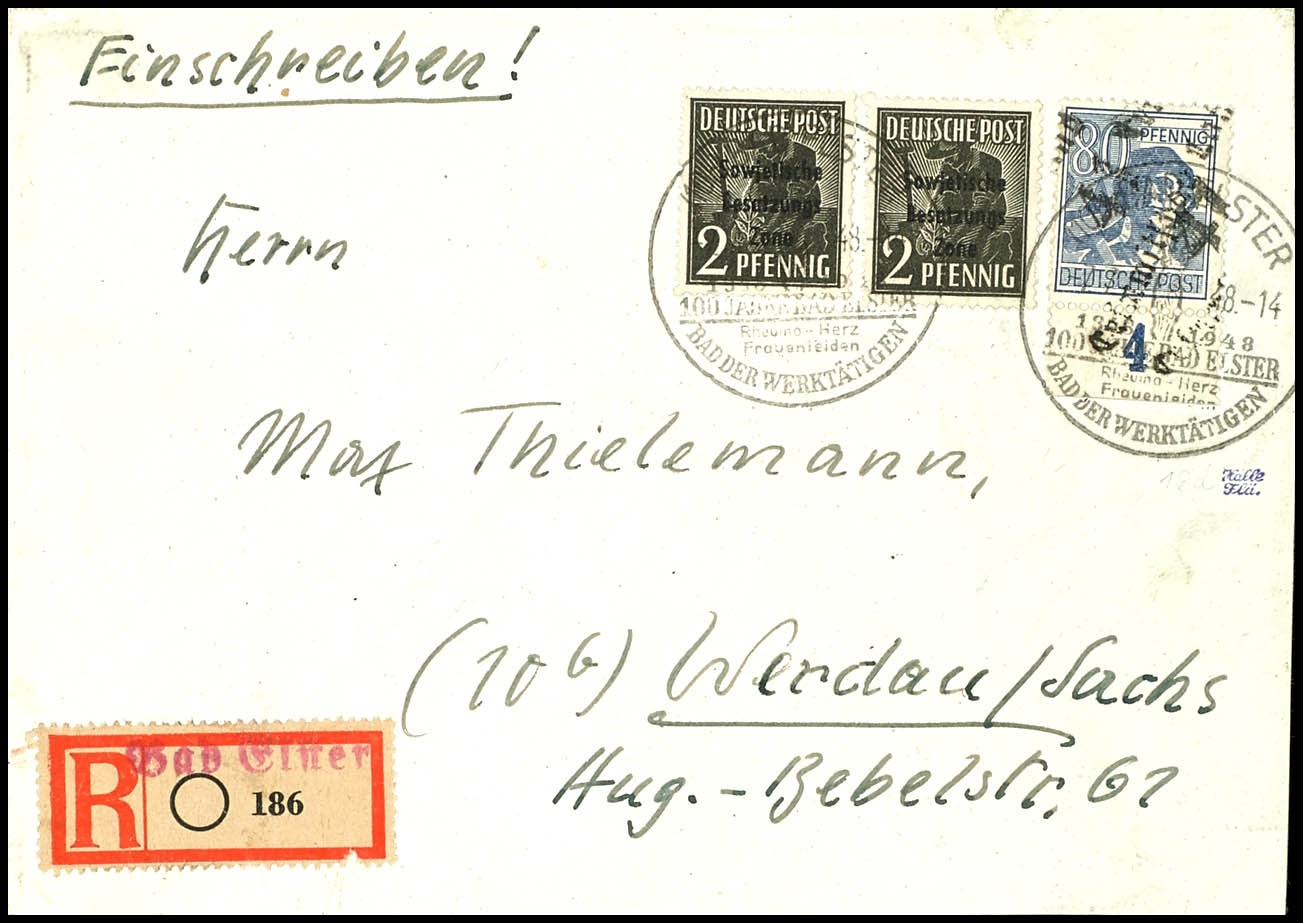 Einschreiben!
DEUTSCHE POST
Sowjetische
Besatzungs
Zone
2 PFENNIG
DEUTSCHE POST
Sowjetische
Besatzungs
Zone
2 PFENNIG
80 PFENNIG
DEUTSCHE POST
4
48.-
100 JAHRE BAD ELSTER
Rheuma - Herz
Frauenleiden
BAD DER WERKTÄTIGEN
ELSTER
48.-14
1848 1948
100 JAHRE BAD ELSTER
Rheuma - Herz
Frauenleiden
BAD DER WERKTÄTIGEN
Herrn
Max Thielemann,
Halle
(10b) Werdau/Sachs
Aug.-Bebelstr. 61
Bad Elster
R 186